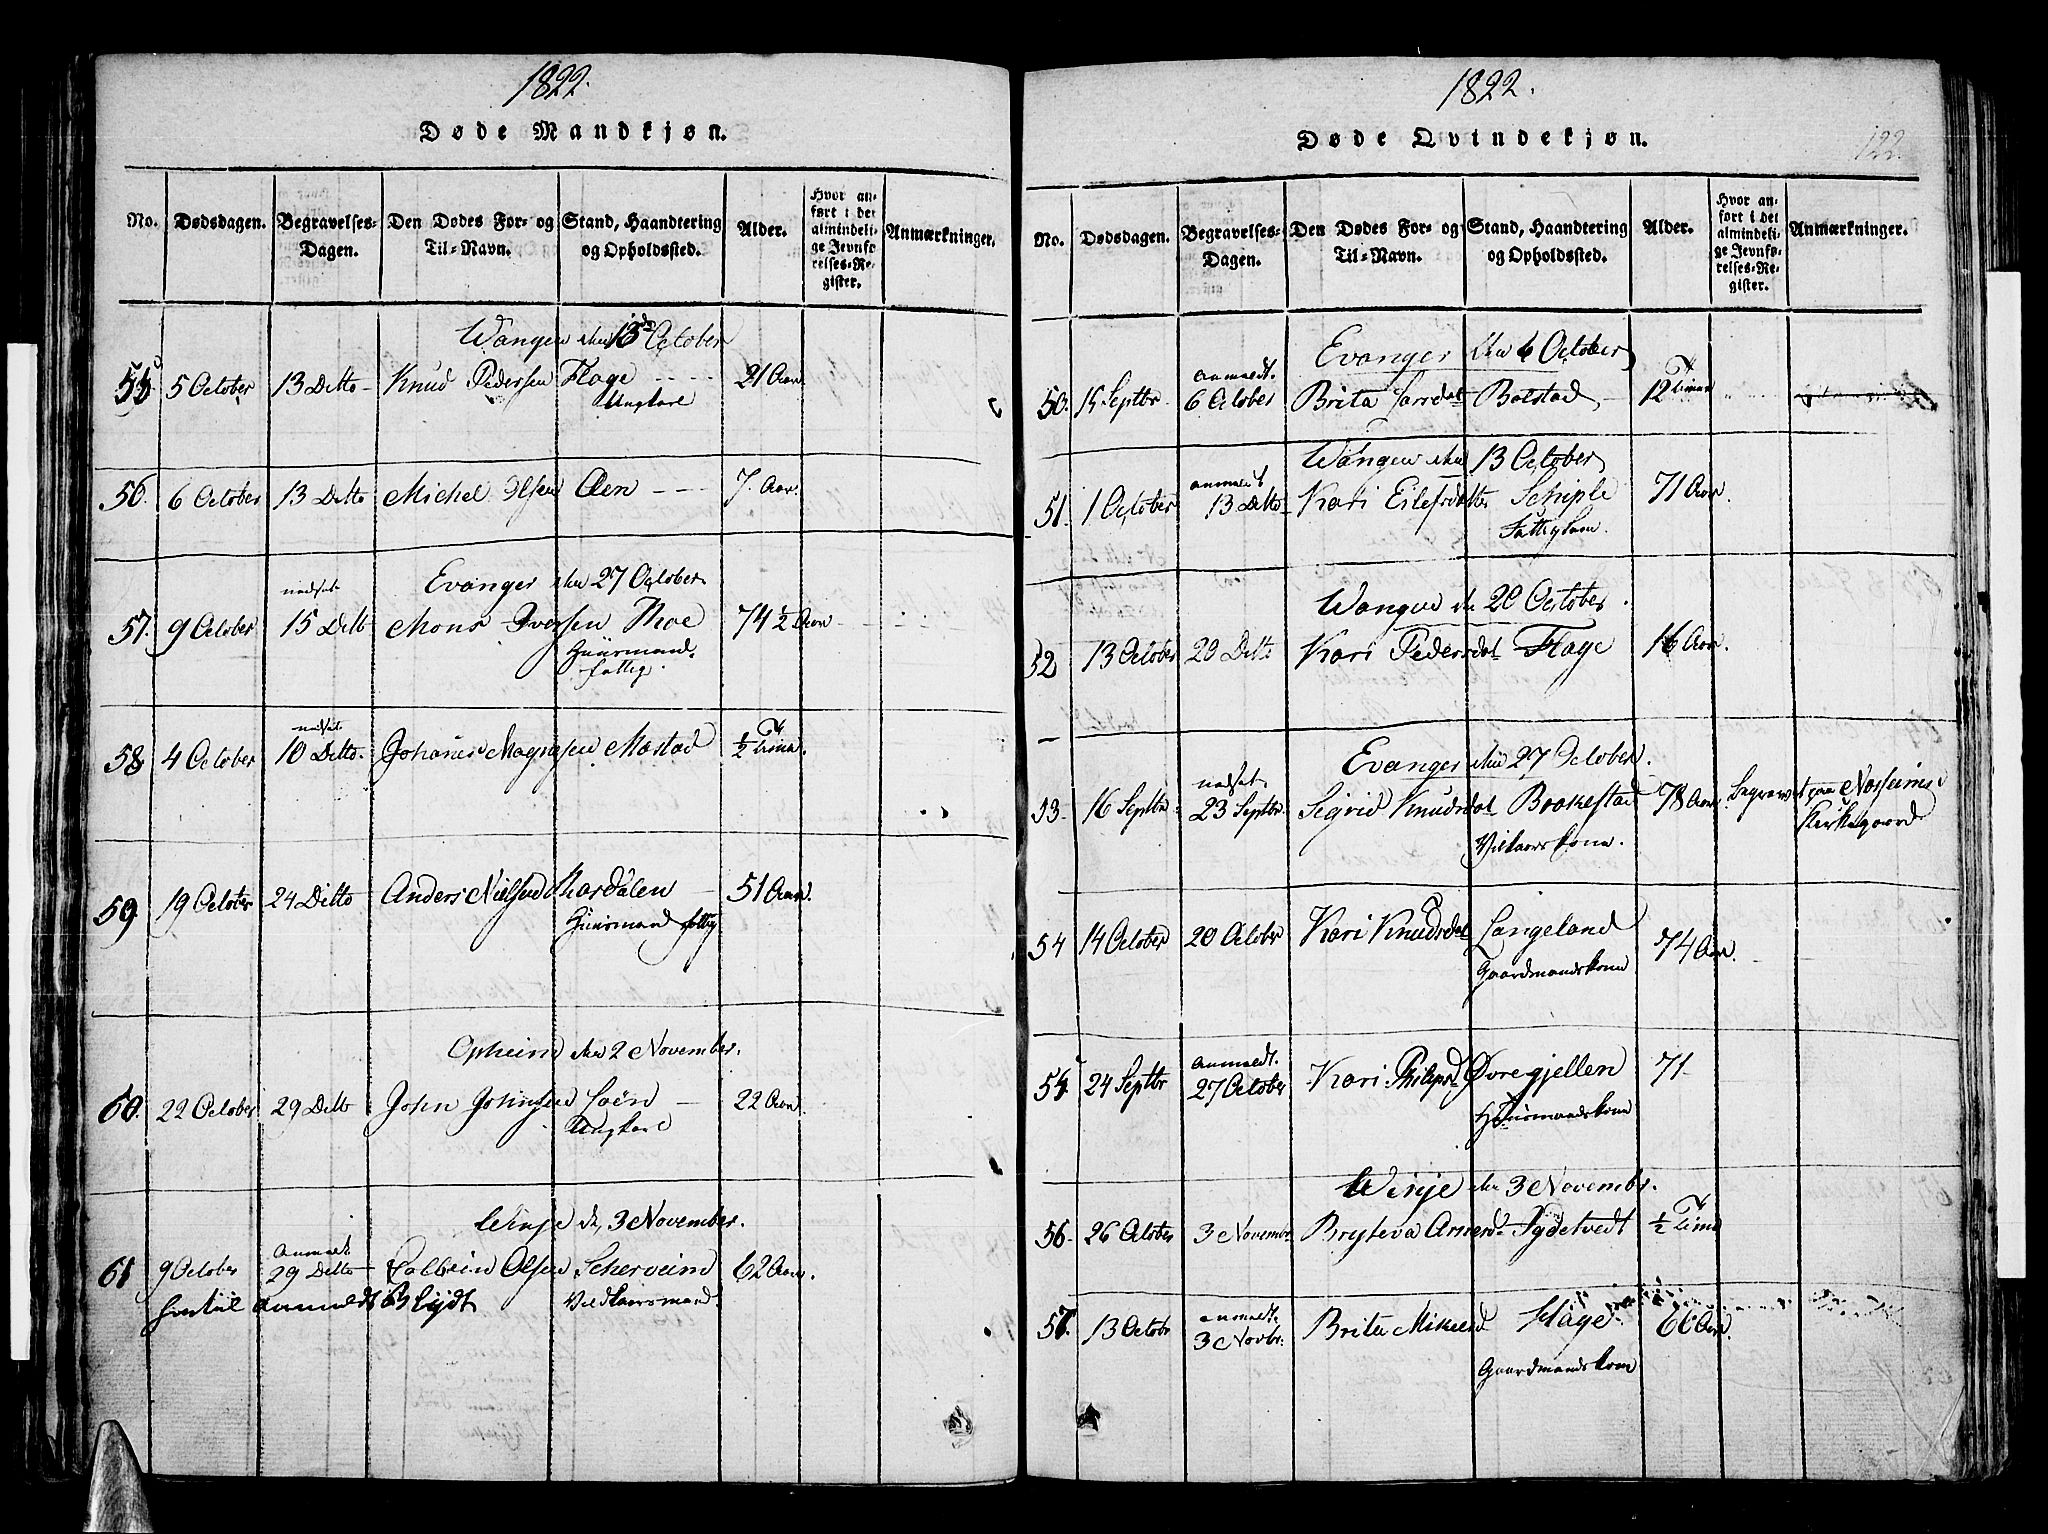 1822.
Døde Mandkjøn.
No.
Dødsdagen.
Begravelses-Dagen.
Den Dødes For- og Til-Navn.
Stand, Haandtering og Opholdssted.
Alder.
Hvor anført i det almindelige Jevnførelses-Register.
Anmærkninger.
Wangen den 13de October
55. 5 October 13 Ditto Knud Pedersen Flage 21 Aar
Ungkarl
56. 6 October 13 Ditto Michel Olsen Øen 7 Aar.
Evanger den 27 October.
nedsat
57. 9 October 15 Ditto Mons Iversen Moe 74 1/2 Aar
Huusmand
fattig.
nedsat
58 4 October 10 Ditto Johannes Magnesen Mostad 1/2 Time.
59 19 October 24 Ditto Anders Nielsen 51 Aar.
Huusmand fattig
Opheim den 2 November.
60. 22 October 29 Ditto John Johnsen Løen 22 Aar
Ungkarl
Winje d. 3 November.
anmeldt
61 9 October 29 Ditto Colbein Olsen Scherveim 62 Aar.
anmeldt Vilkaarsmand.
1822.
Døde Qvindekjøn.
122.
No.
Dødsdagen.
Begravelses-Dagen.
Den Dødes For- og Til-Navn.
Stand, Haandtering og Opholdssted.
Alder.
Hvor anført i det almindelige Jevnførelses-Register.
Anmærkninger.
Evanger den 6 October
anmeldt.
50. 15 Septbr. 6 October Brita Larsdat Bolstad 12 Timer
Wangen den 13 October
anmeldt
51. 1 October 13 Ditto Kari Eilefsdatter Schiple 71 Aar.
Fattiglem.
Wangen den 20 October.
52 13 October 20 Ditto Kari Pedersdat Flage 16 Aar.
Evanger den 27 October.
nedsat
53. 16 Septbr. 23 Septbr. Sigrid Knudsdat Brakestad 78 Aar. Begravet paa
Vilkaarskone. Kirkegaard
54 14 October 20 October Kari Knudsdat Langeland 74 Aar.
Gaardmandskone
anmeldt.
55 24 Septbr 27 October Kari Philipsd Øvregjellen 71
Huusmandskone
Winje den 3 Novembr.
56. 26 October 3 Novembr. Bryteva Arnesd. Sydetvedt 1/2 Time
anmeldt.
57. 13 Octobr 3 Novbr. Brita Mikelsd Flage 66 Aar.
Gaardmandskone